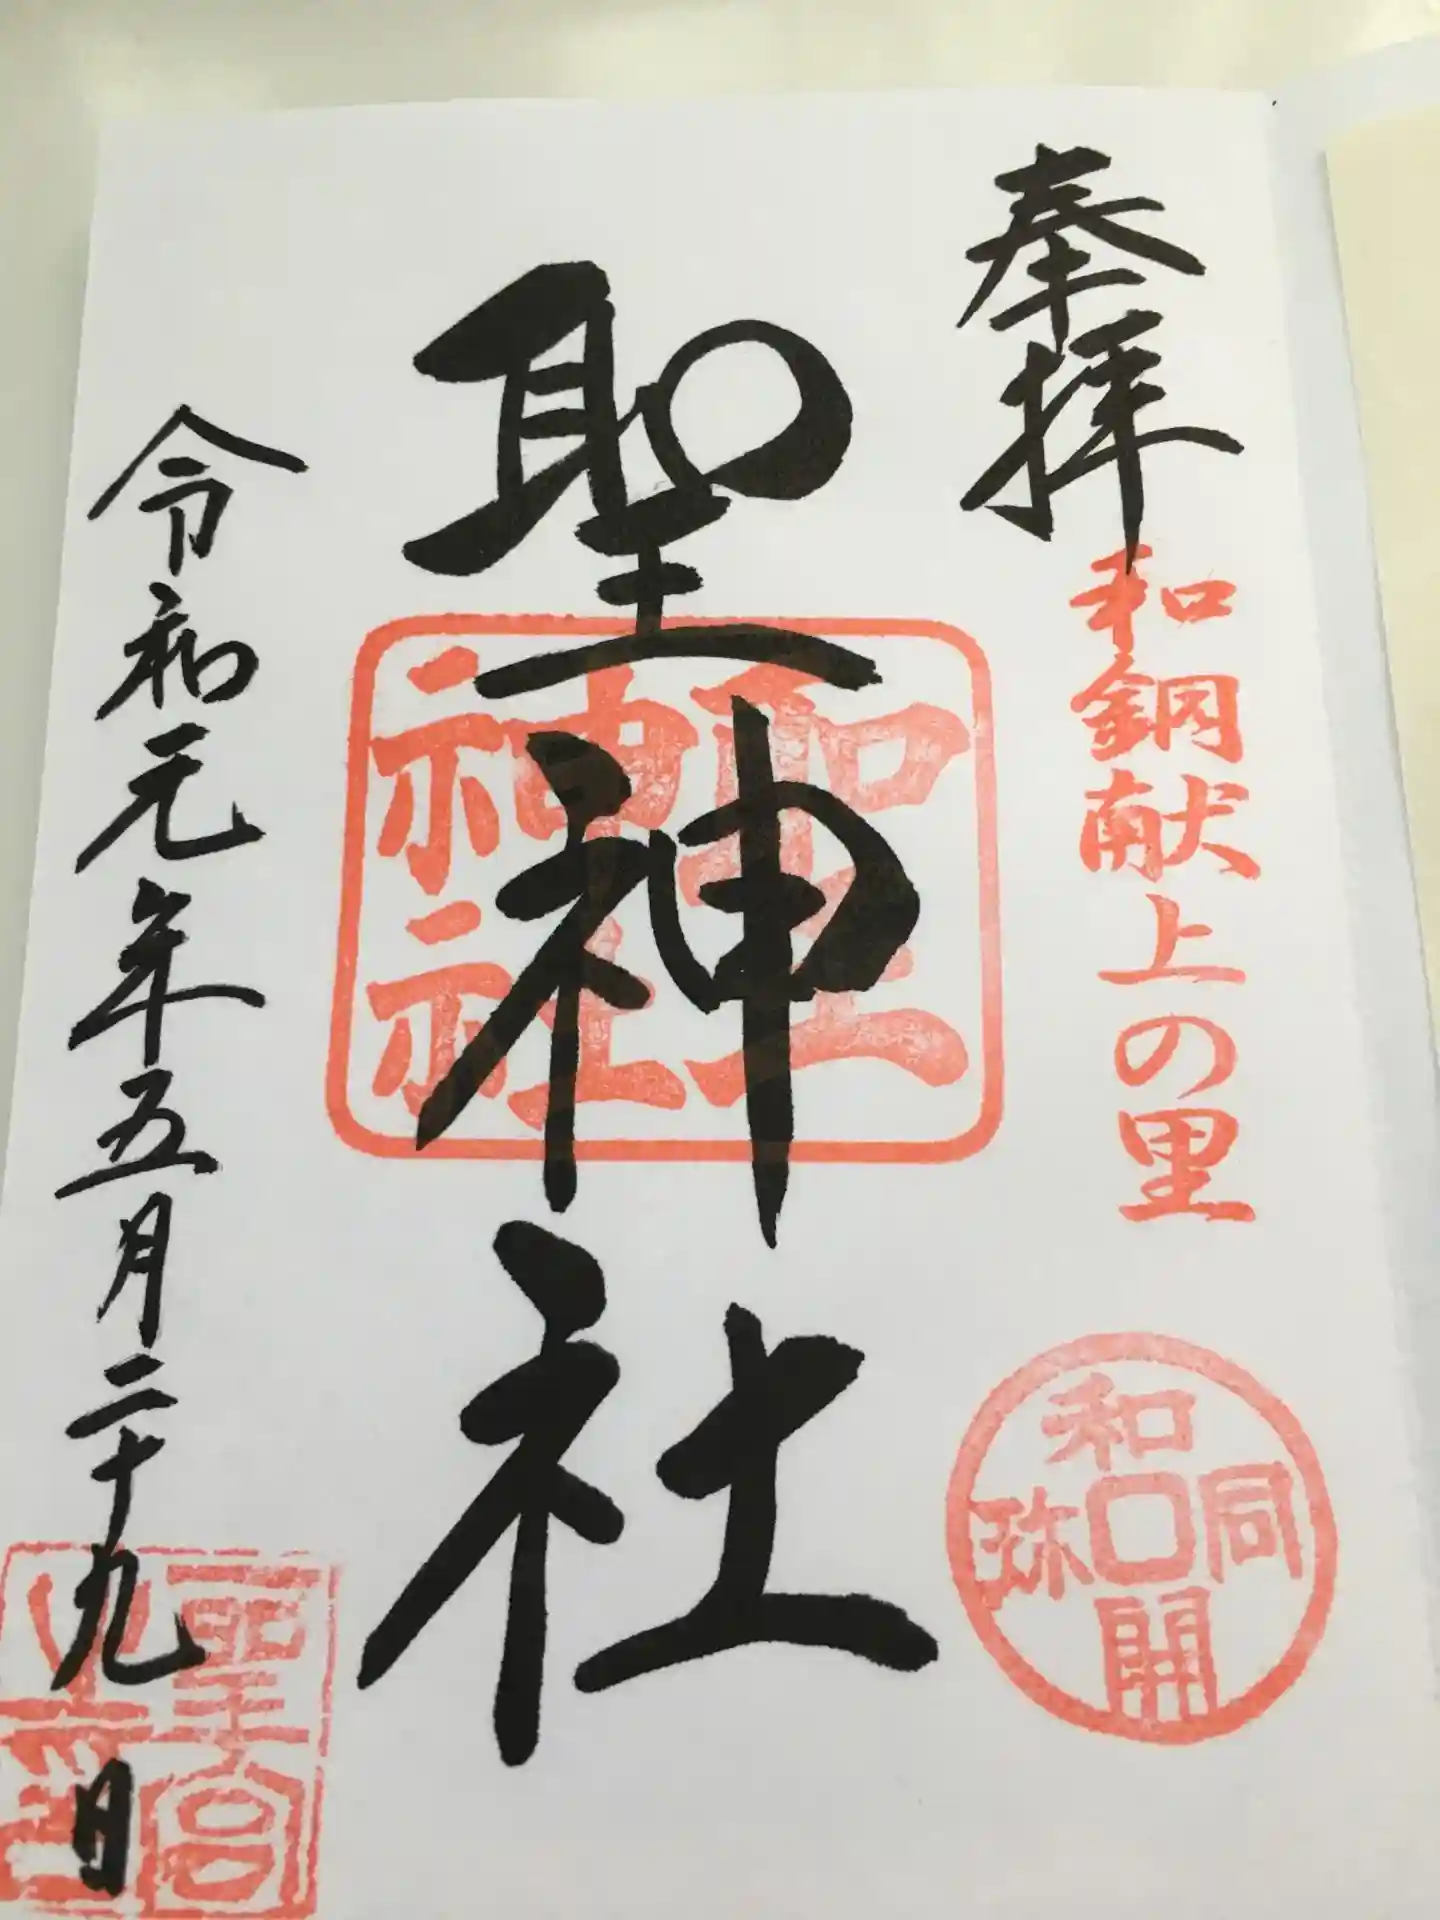 奉拝
和銅献上の里
和同開珎
聖神社
聖神社
令和元年五月二十九日